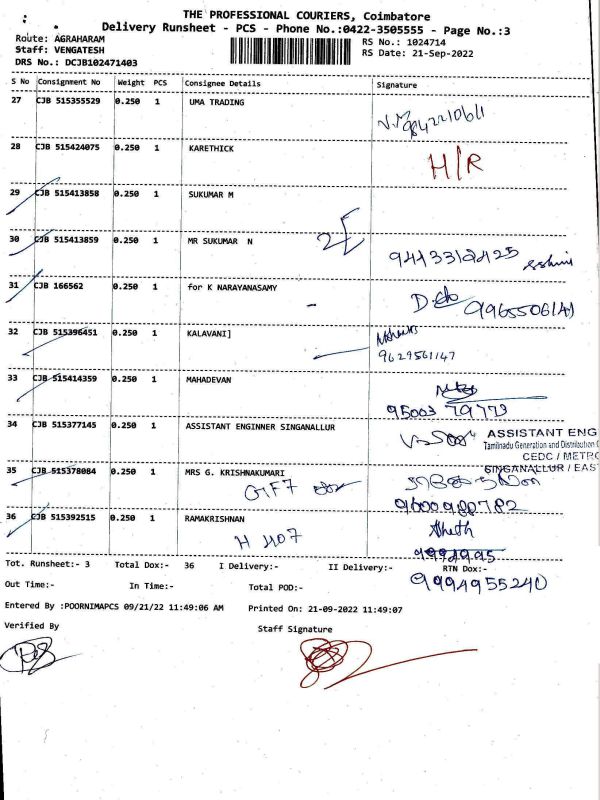 THE PROFESSIONAL COURIERS, Coimbatore
Delivery Runsheet - PCS - Phone No.:0422-3505555 - Page No.:3
Route: AGRAHARAM
Staff: VENGATESH
DRS No.: DCJB102471403
RS No.: 1024714
RS Date: 21-Sep-2022
S No Consignment No Weight PCS Consignee Details Signature
27 CJB 515355529 0.250 1 UMA TRADING
28 CJB 515424075 0.250 1 KARETHICK H/R
29 CJB 515413858 0.250 1 SUKUMAR M
30 CJB 515413859 0.250 1 MR SUKUMAR N
31 CJB 166562 0.250 1 for K NARAYANASAMY
9965506141
32 CJB 515396451 0.250 1 KALAVANI]
9629561147
33 CJB 515414359 0.250 1 MAHADEVAN
95003 79773
34 CJB 515377145 0.250 1 ASSISTANT ENGINNER SINGANALLUR
ASSISTANT ENG
Tamilnadu Generation and Distribution C
CEDC / METRO
SINGANALLUR / EAST
35 CJB 515378084 0.250 1 MRS G. KRISHNAKUMARI
GTF7
9600980782
36 CJB 515392515 0.250 1 RAMAKRISHNAN
H 407
9994995
9994955240
Tot. Runsheet:- 3 Total Dox:- 36 I Delivery:- II Delivery:- RTN Dox:-
Out Time:- In Time:- Total POD:-
Entered By :POORNIMAPCS 09/21/22 11:49:06 AM Printed On: 21-09-2022 11:49:07
Verified By Staff Signature